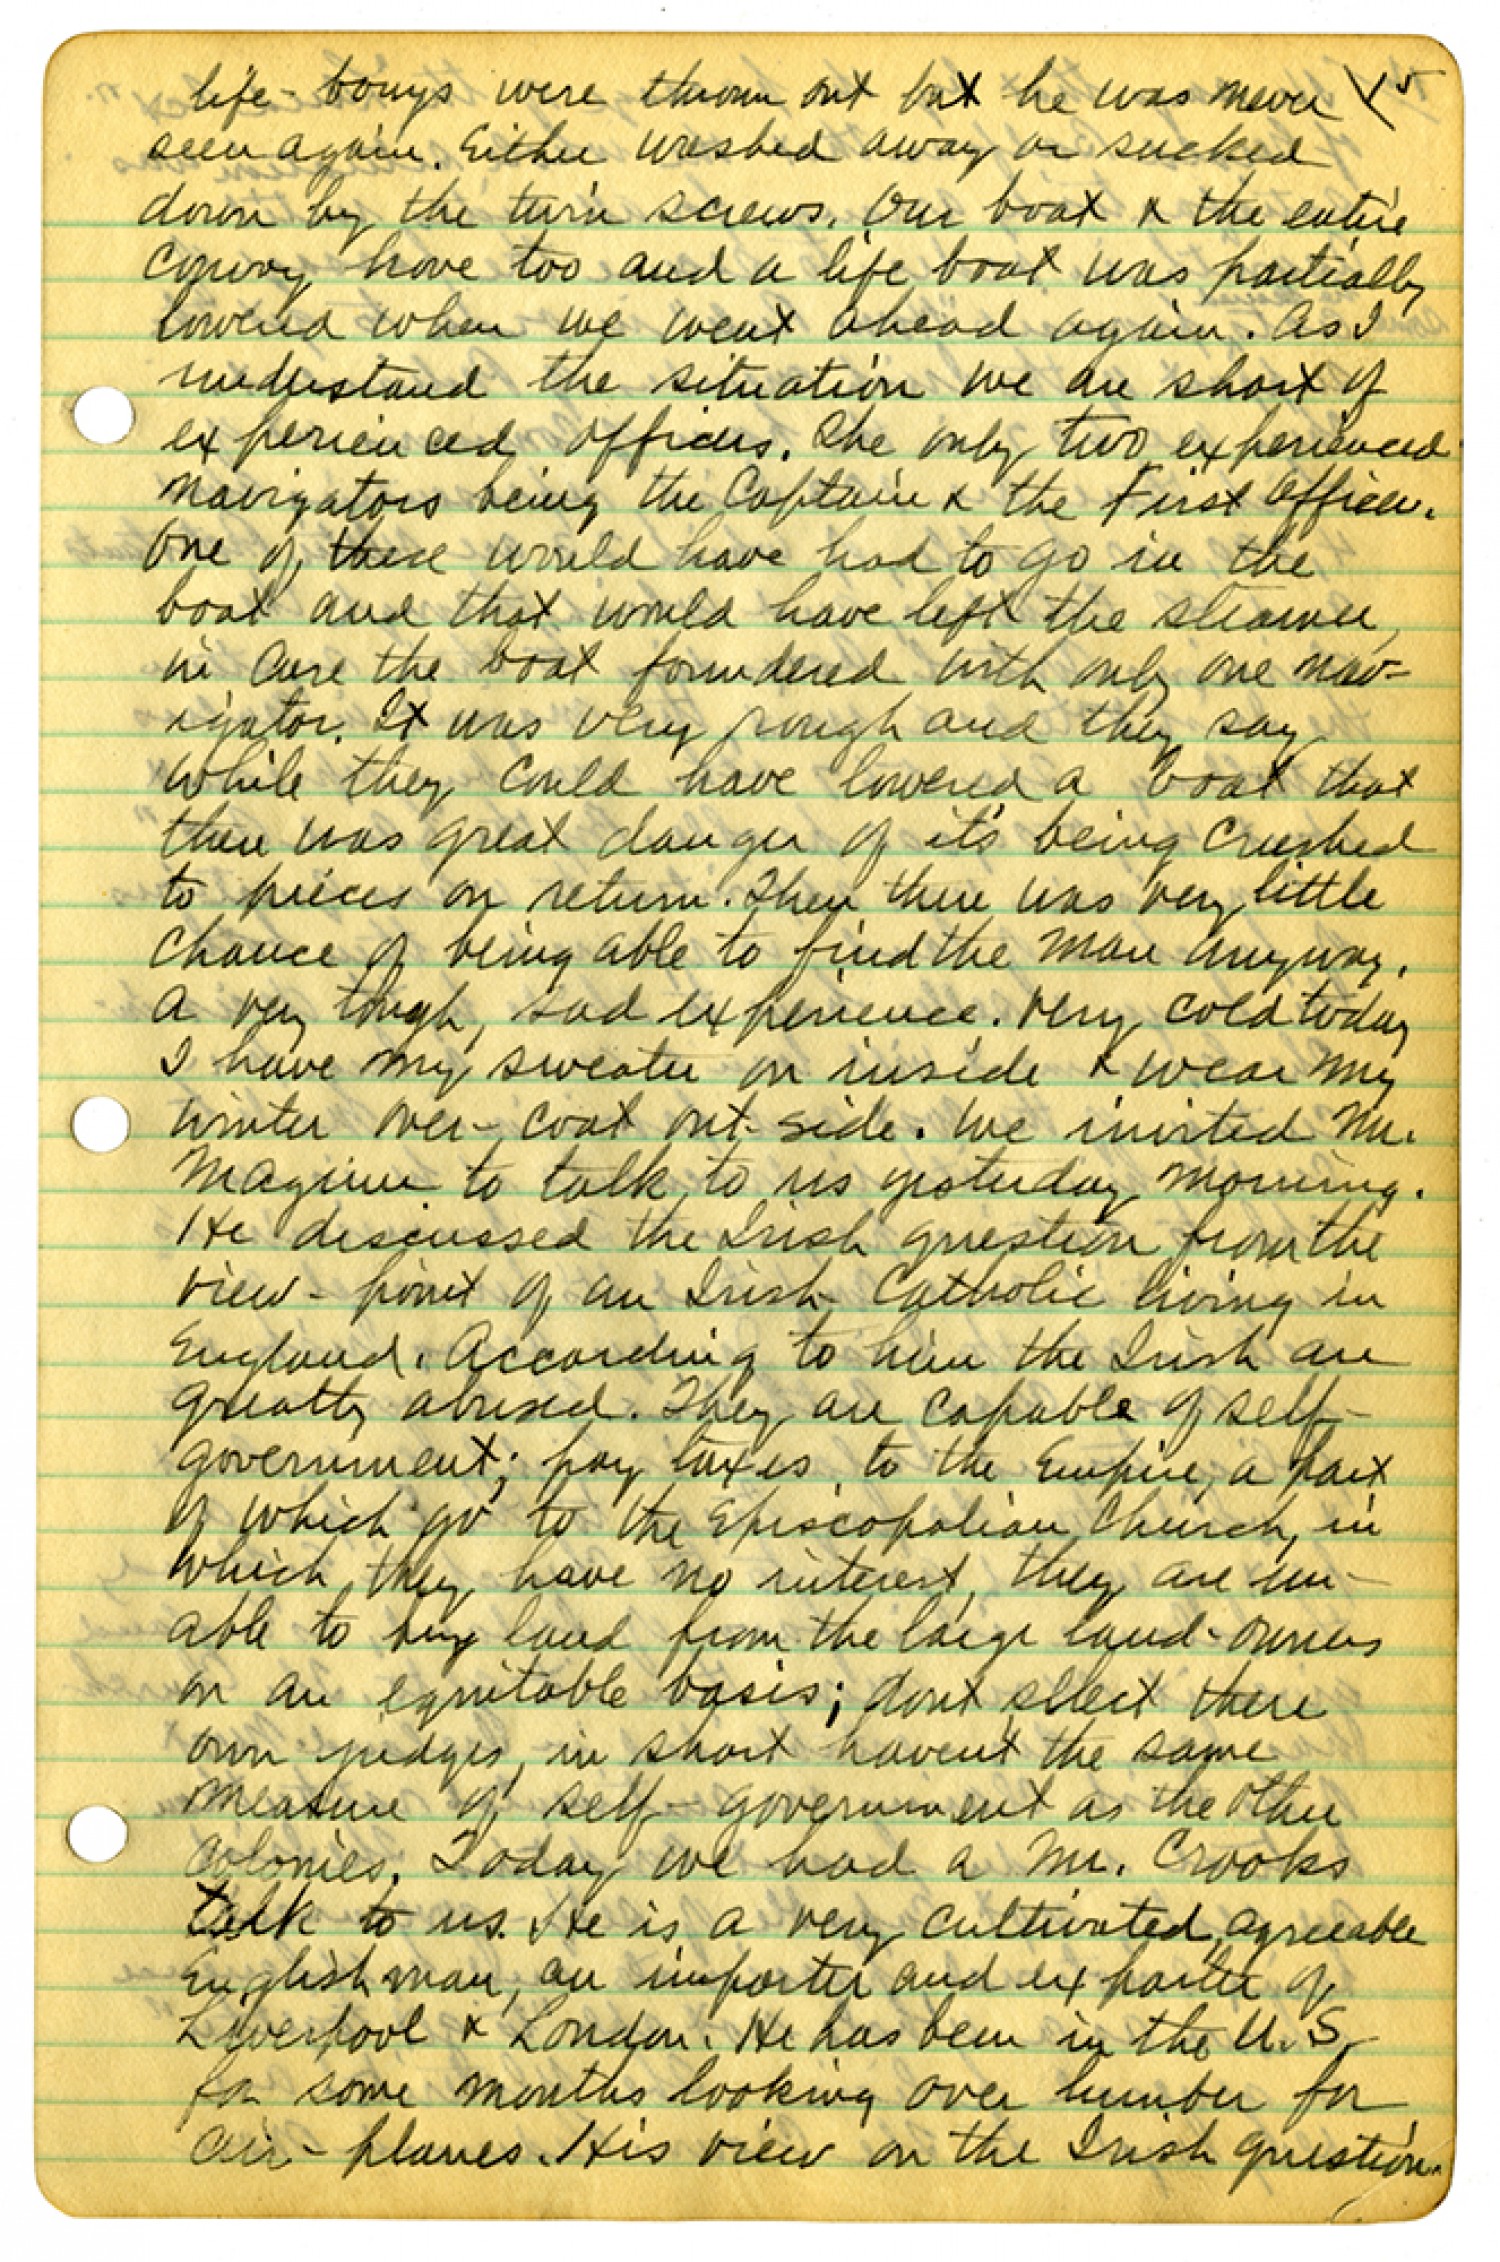 life-bouys were thrown out but he was never 15
seen again. Either washed away or sucked
down by the twin screws. Our boat & the entire
convoy hove too and a life boat was partially
lowered when we went ahead again. As I
understand the situation we are short of
experienced officers. The only two experienced
navigators being the Captain & the First Officer.
One of these would have had to go in the
boat and that would have left the steamer,
in case the boat foundered with only one nav-
igator. It was very rough and they say
while they could have lowered a boat that
there was great danger of it's being crushed
to pieces on return. Then there was very little
chance of being able to find the man anyway.
A very tough, sad experience. Very cold today
I have my sweater on inside & wear my
winter over-coat out-side. We invited Mr.
Maginn to talk to us yesterday morning.
He discussed the Irish question from the
view-point of an Irish Catholic living in
England. According to him the Irish are
greatly abused. They are capable of self-
government; pay taxes to the Empire, a part
of which go to the Episcopalian Church, in
which they have no interest, they are un-
able to buy land from the large land-owners
on an equitable basis; dont select there
own judges, in short havent the same
measure of self-government as the other
colonies. Today we had a Mr. Crooks
talk to us. He is a very cultivated, agreeable
Englishman, an importer and exporter of
Liverpool & London. He has been in the U.S.
for some months looking over lumber for
air-planes. His view on the Irish question.